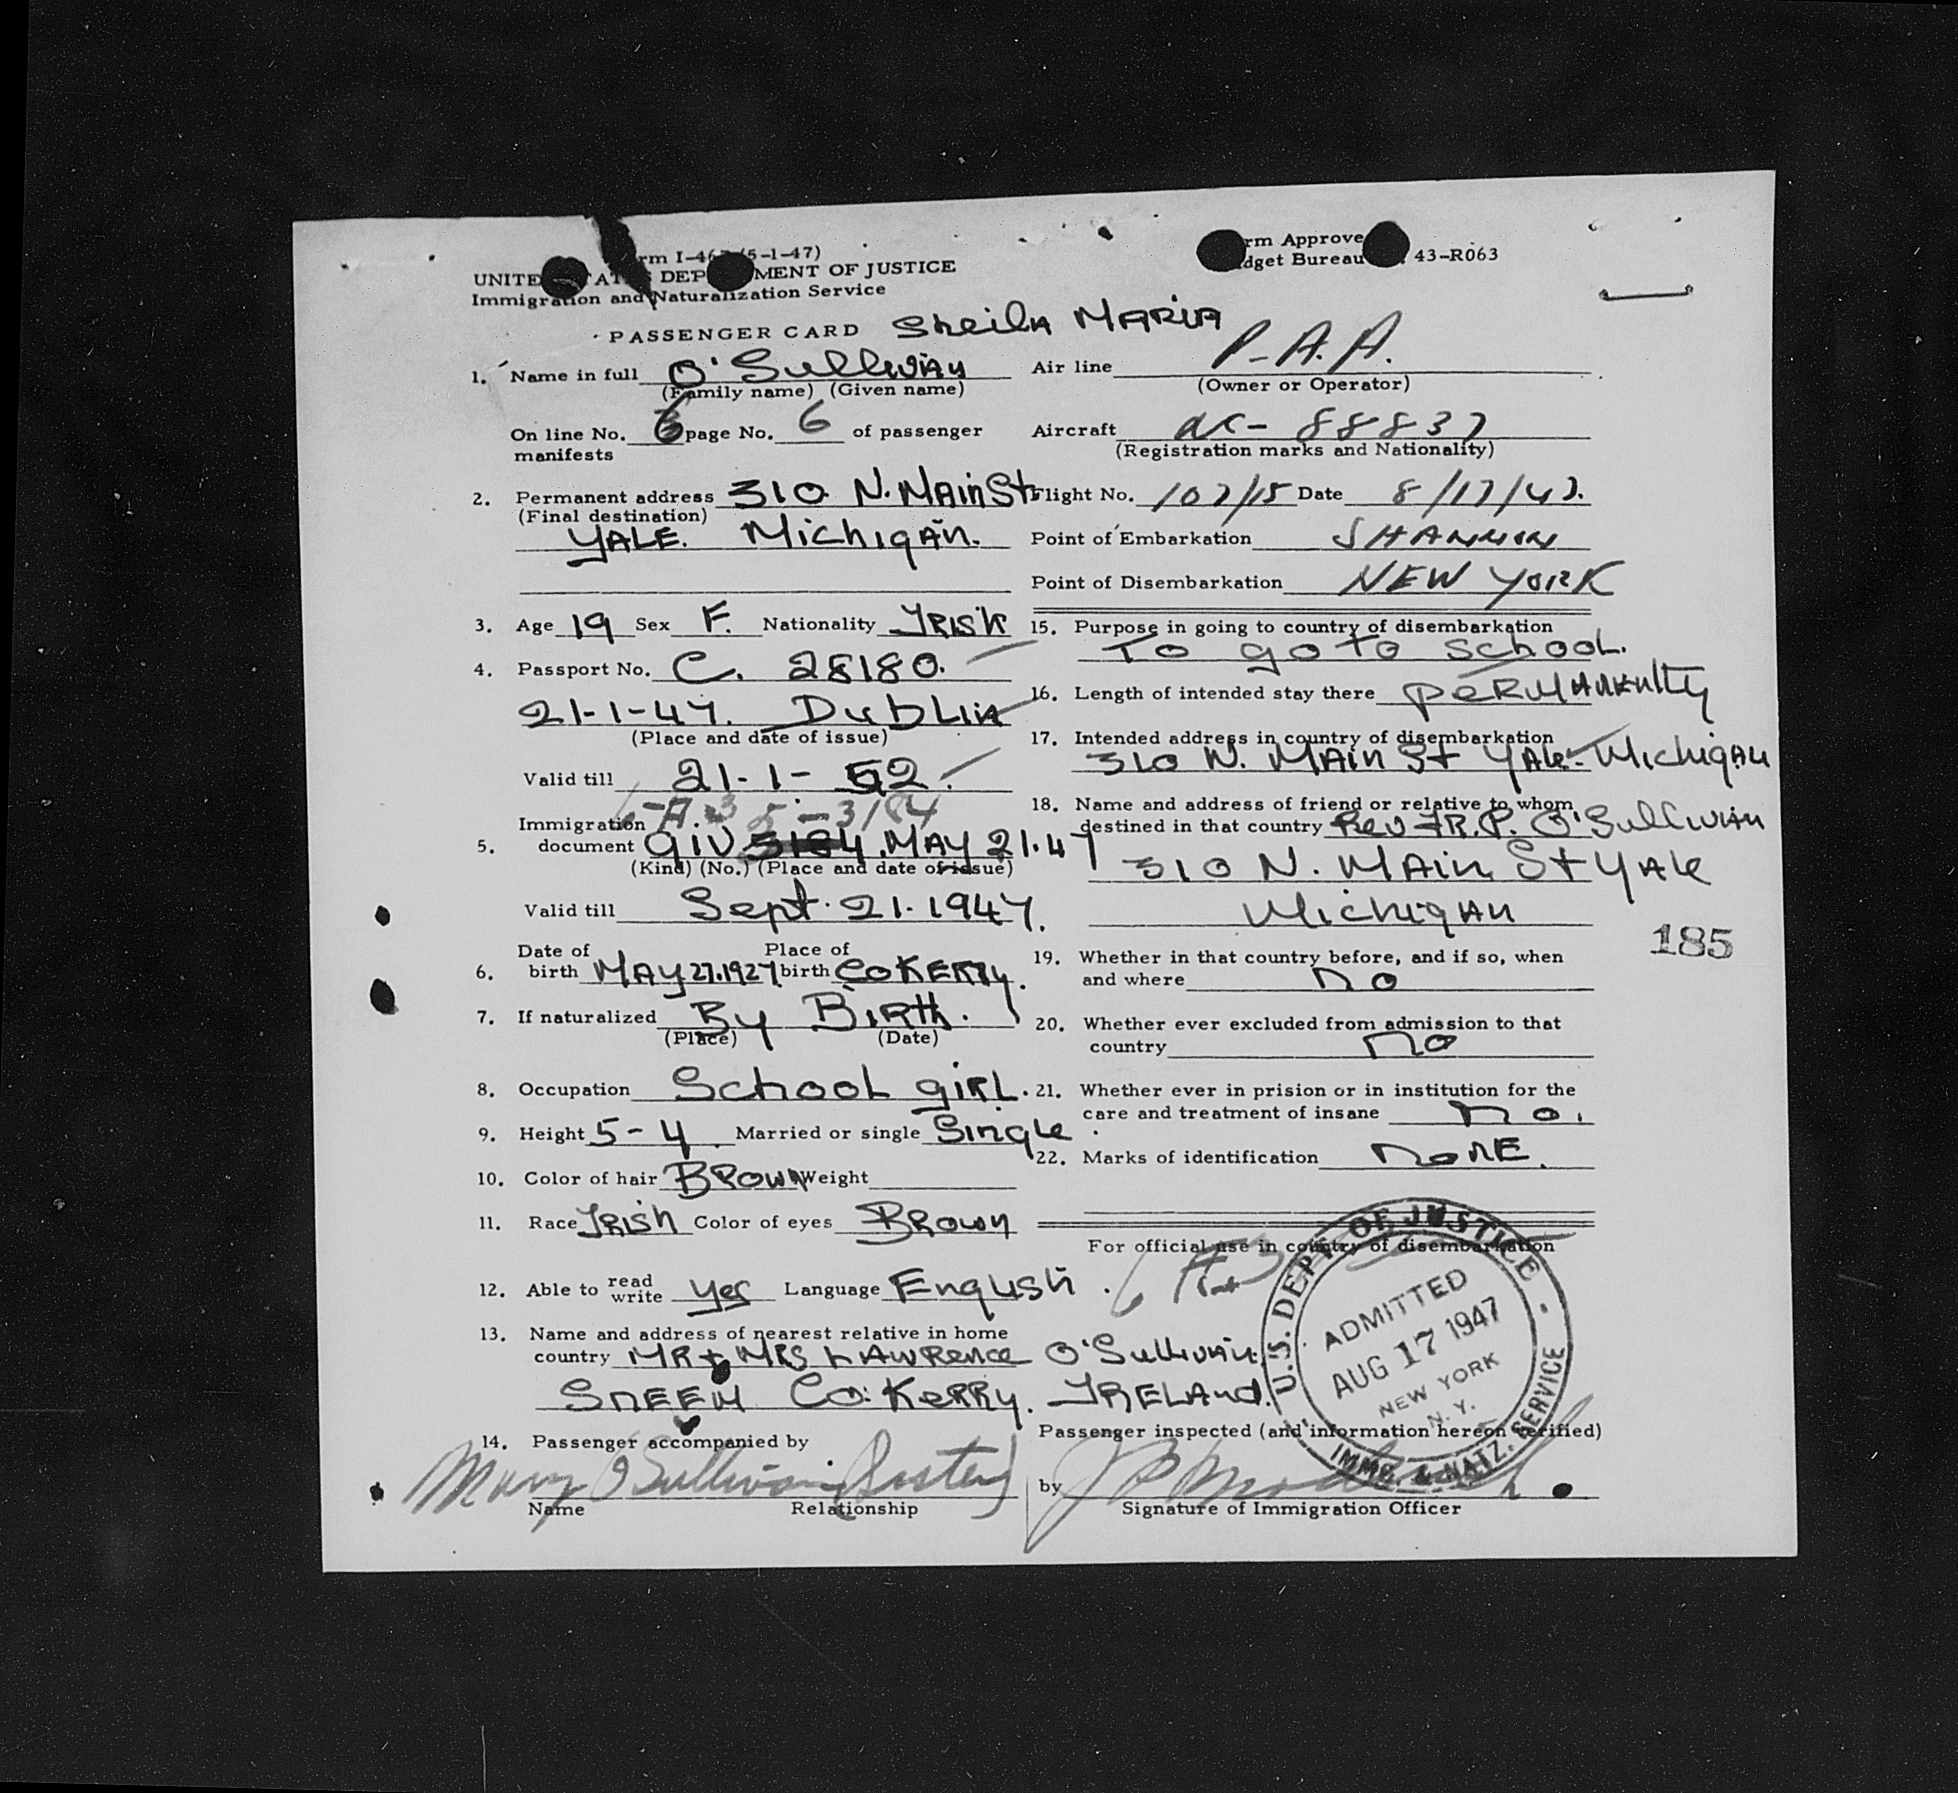 rm I-46 (5-1-47)
UNITE STATES DEP MENT OF JUSTICE
Immigration and Naturalization Service
rm Approve
dget Bureau 43-R063
PASSENGER CARD Sheila MARIA
1. Name in full O'Sullivan
(Family name) (Given name)
On line No. 6 page No. 6 of passenger
manifests
2. Permanent address 310 N. MAin St
(Final destination)
YALE. Michigan.
3. Age 19 Sex F. Nationality IRISh
4. Passport No. C. 28180.
21-1-47. DubLin
(Place and date of issue)
Valid till 21-1-52.
Immigration
5. document QIV 3184. MAY 21.47
(Kind) (No.) (Place and date of issue)
Valid till Sept. 21. 1947.
Date of Place of
6. birth MAY 27.1927 birth Co KERRy.
7. If naturalized By BiRth.
(Place) (Date)
8. Occupation School giRL.
9. Height 5-4. Married or single Single
10. Color of hair BROWN Weight
11. Race IRISh Color of eyes BROWN
12. Able to read write yes Language English.
13. Name and address of nearest relative in home
country MR + MRS LAWRence O'Sullivan.
SNEEM Co: KeRRy. IRELAnd.
14. Passenger accompanied by
Mary O'Sullivan (sister)
Name Relationship
Air line P.A.A.
(Owner or Operator)
Aircraft NC-88837
(Registration marks and Nationality)
Flight No. 107/15 Date 8/17/47.
Point of Embarkation SHANNON
Point of Disembarkation NEW YORK
15. Purpose in going to country of disembarkation
To go to school.
16. Length of intended stay there peRMANENtly
17. Intended address in country of disembarkation
310 N. MAin St YAle-Michigan
18. Name and address of friend or relative to whom
destined in that country Rev FR. P. O'Sullivan
310 N. MAin St YAle
Michigan
185
19. Whether in that country before, and if so, when
and where no
20. Whether ever excluded from admission to that
country no
21. Whether ever in prision or in institution for the
care and treatment of insane no.
22. Marks of identification nonE.
For official use in country of disembarkation
U.S. DEPT. OF JUSTICE - IMMG. & NATZ. SERVICE
ADMITTED
AUG 17 1947
NEW YORK
N. Y.
Passenger inspected (and information hereon verified)
by
Signature of Immigration Officer